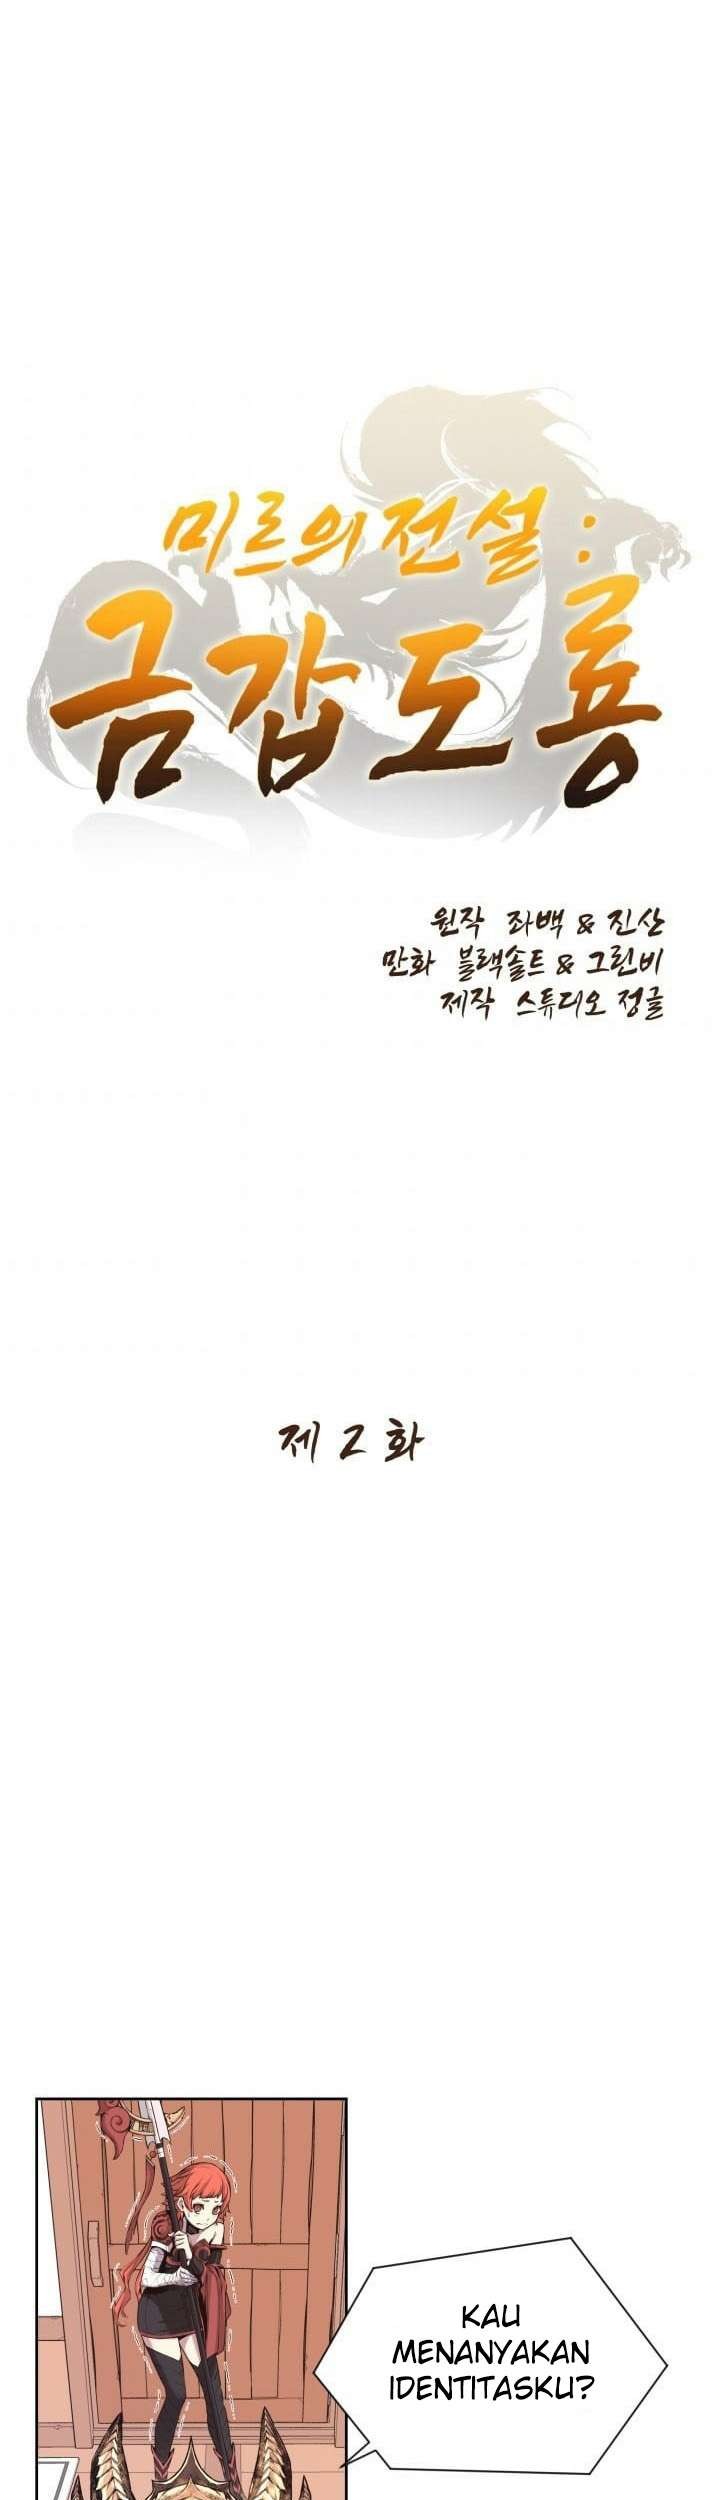 미르의 전설 :
금갑도룡
원작 좌백 & 진산
만화 블랙솔트 & 그린비
제작 스튜디오 정글
제 2 화
KAU
MENANYAKAN
IDENTITASKU?